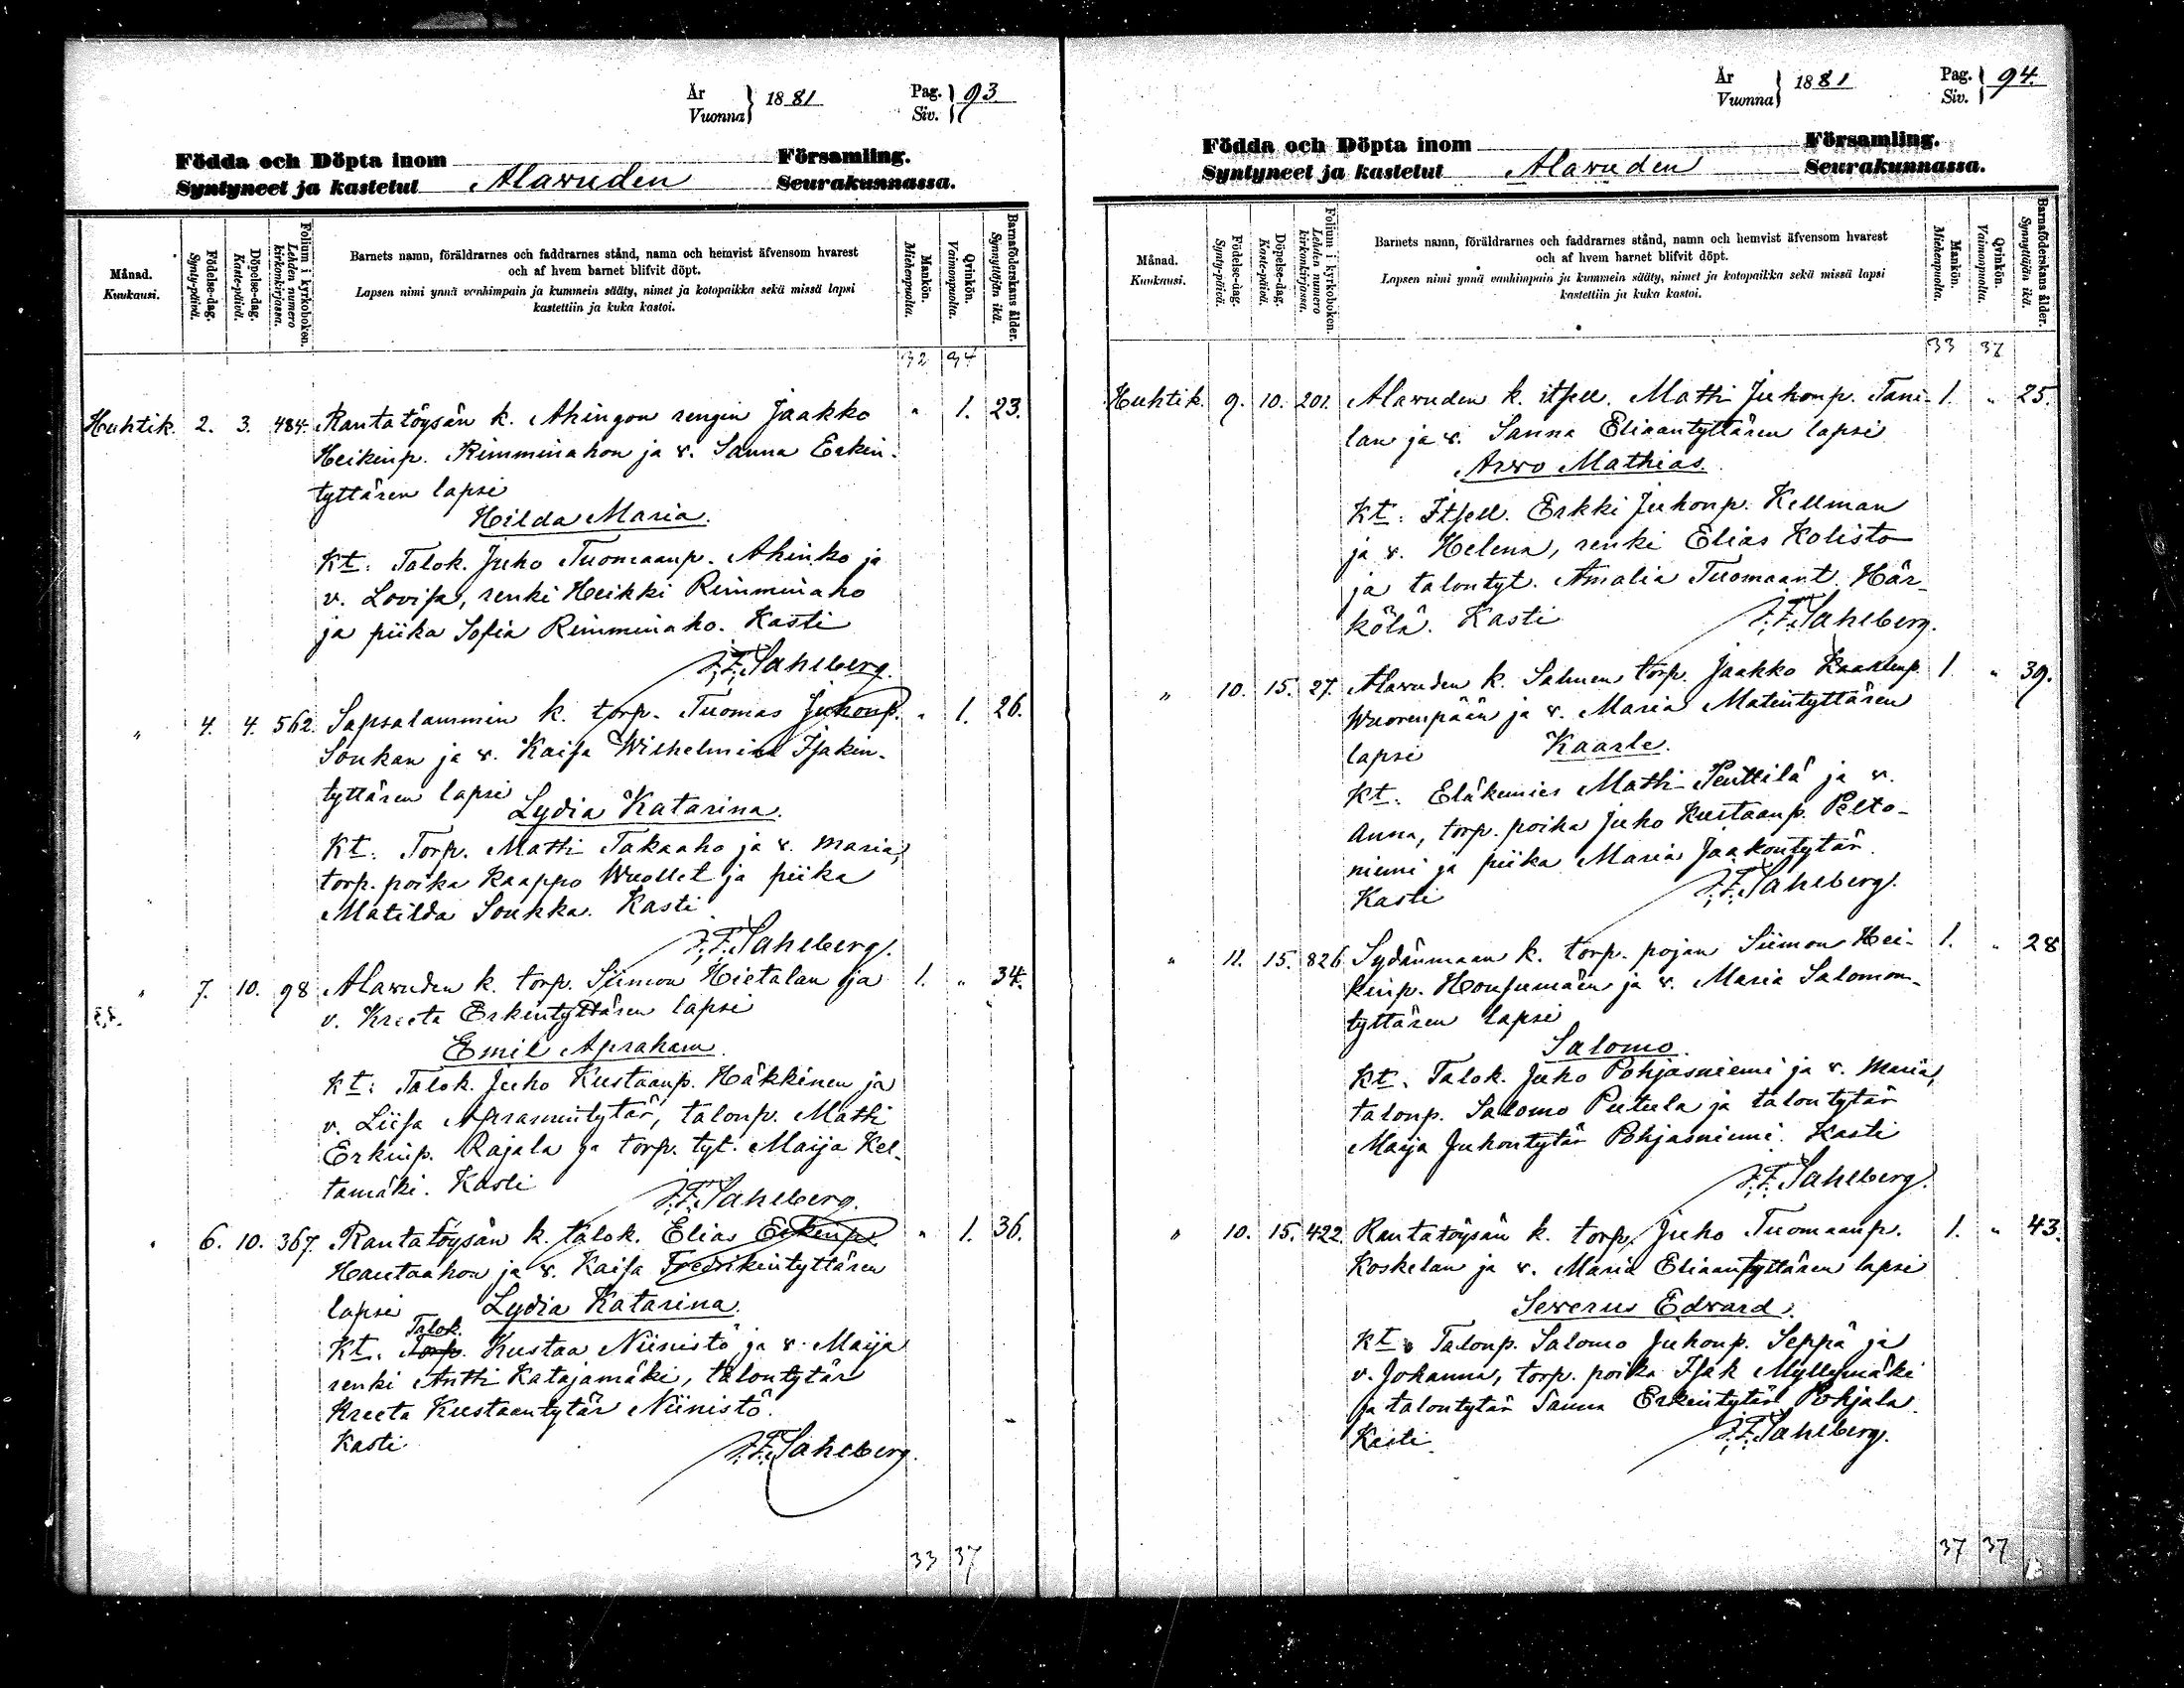 År
Vuonna } 1881
Pag.
Siv. } 93
Födda och Döpta inom Församling.
Syntyneet ja kastetut Alavuden Seurakunnassa.
Månad.
Kuukausi.
Födelse-dag.
Synty-päivä.
Döpelse-dag.
Kaste-päivä.
Folium i kyrkoboken.
Lehden numero kirkonkirjassa.
Barnets namn, föräldrarnes och faddrarnes stånd, namn och hemvist äfvensom hvarest
och af hvem barnet blifvit döpt.
Lapsen nimi ynnä vanhimpain ja kummein sääty, nimet ja kotopaikka sekä missä lapsi
kastettiin ja kuka kastoi.
Mankön.
Miehenpuolia.
Qvinkön.
Vaimonpuolia.
Barnaföderskans ålder.
Synnyttäjän ikä.
32 34
Huhtik. 2. 3. 484. Rantatöysän k. Ahingon rengin Jaakko " 1. 23.
Heikinp. Rimminahon ja v. Sanna Erkin-
tyttären lapsi
Hilda Maria.
Kt: Talok. Juho Tuomaanp. Ahinko ja
v. Lovisa, renki Heikki Rimminaho
ja piika Sofia Rimminaho. Kasti
J.F. Sahlberg.
" 4. 4. 562. Sapsalammin k. torp. Tuomas Juhonp. " 1. 26.
Soukan ja v. Kaisa Wilhelmina Isakin-
tyttären lapsi
Lydia Katarina.
Kt: Torp. Matti Takaaho ja v. Maria,
torp. poika Kaappo Wuollet ja piika
Matilda Soukka. Kasti
J.F. Sahlberg.
" 7. 10. 98 Alavuden k. torp. Siimon Hietalan ja 1. " 34.
v. Kreeta Erkintyttären lapsi
Emil Apraham.
Kt: Talok. Juho Kustaanp. Häkkinen ja
v. Liisa Apramintytär, talonp. Matti
Erkinp. Rajala ja torp. tyt. Maija Kel-
tamäki. Kasti
J.F. Sahlberg.
" 6. 10. 367. Rantatöysän k. talok. Elias Erkinp. " 1. 36.
Hautaahon ja v. Kaisa Fredrikintyttären
lapsi Lydia Katarina.
Talok.
Kt: Torp. Kustaa Niinistö ja v. Maija
renki Antti Katajamäki, talontytär
Kreeta Kustaantytär Niinistö.
Kasti
J.F. Sahlberg.
33 37
År
Vuonna } 1881
Pag.
Siv. } 94.
Födda och Döpta inom Församling.
Syntyneet ja kastetut Alavuden Seurakunnassa.
Månad.
Kuukausi.
Födelse-dag.
Synty-päivä.
Döpelse-dag.
Kaste-päivä.
Folium i kyrkoboken.
Lehden numero kirkonkirjassa.
Barnets namn, föräldrarnes och faddrarnes stånd, namn och hemvist äfvensom hvarest
och af hvem barnet blifvit döpt.
Lapsen nimi ynnä vanhimpain ja kummein sääty, nimet ja kotopaikka sekä missä lapsi
kastettiin ja kuka kastoi.
Mankön.
Miehenpuolia.
Qvinkön.
Vaimonpuolia.
Barnaföderskans ålder.
Synnyttäjän ikä.
33 37
Huhtik. 9. 10. 201. Alavuden k. itsell. Matti Juhonp. Tani- 1. " 25.
lan ja v. Sanna Eliaantyttären lapsi
Arvo Mathias.
Kt: Itsell. Erkki Juhonp. Kellman
ja v. Helena, renki Elias Kolisto
ja talontyt. Amalia Tuomaant. Här-
kölä. Kasti
J.F. Sahlberg.
" 10. 15. 27. Alavuden k. Salmen torp. Jaakko Kaarlenp. 1. " 39.
Wuorenpään ja v. Maria Matintyttären
lapsi Kaarle.
Kt: Eläkemies Matti Penttilä ja v.
Anna, torp. poika Juho Kustaanp. Pelto-
niemi ja piika Maria Jaakontytär.
Kasti
J.F. Sahlberg.
" 11. 15. 826 Sydänmaan k. torp. pojan Siimon Hei- 1. " 28
kinp. Honsumäen ja v. Maria Salomon-
tyttären lapsi
Salomo.
Kt: Talok. Juho Pohjasniemi ja v. Maria,
talonp. Salomo Putula ja talontytär
Maija Juhontytär Pohjasniemi. Kasti
J.F. Sahlberg.
" 10. 15. 422. Rantatöysän k. torp. Juho Tuomaanp. 1. " 43.
Koskelan ja v. Maria Eliaantyttären lapsi
Severus Edvard.
Kt: Talonp. Salomo Juhonp. Seppä ja
v. Johanna, torp. poika Isak Myllymäki
ja talontytär Sanna Erkintytär Pohjala.
Kasti.
J.F. Sahlberg.
37 37